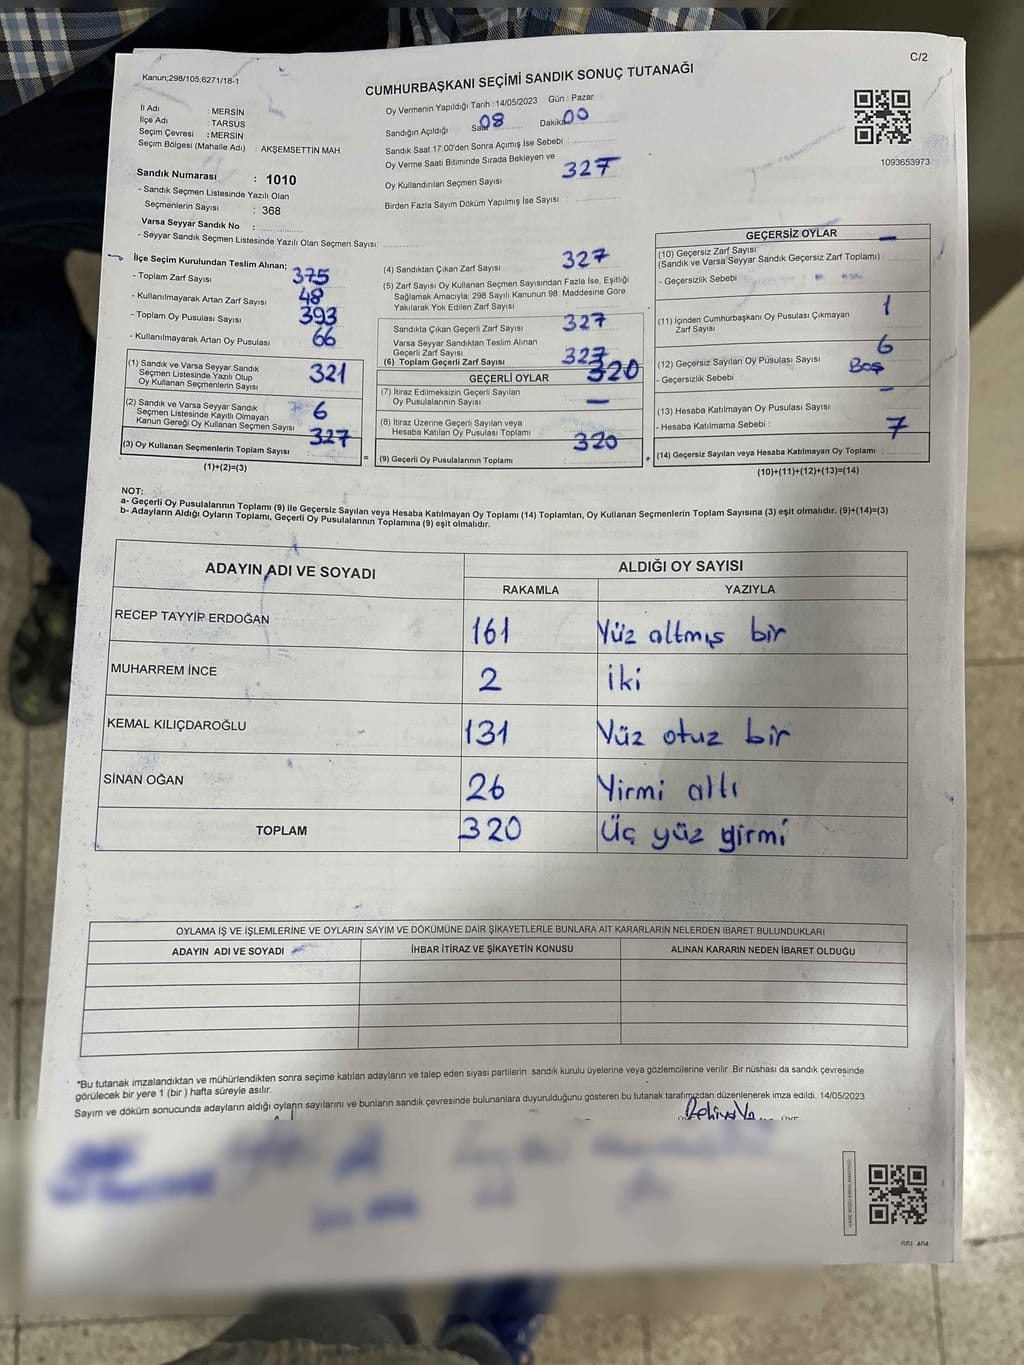 C/2
Kanun;298/105,6271/18-1
CUMHURBAŞKANI SEÇİMİ SANDIK SONUÇ TUTANAĞI
İl Adı : MERSİN
İlçe Adı : TARSUS
Seçim Çevresi : MERSİN
Seçim Bölgesi (Mahalle Adı) : AKŞEMSETTİN MAH.
Oy Vermenin Yapıldığı Tarih : 14/05/2023 Gün : Pazar
Sandığın Açıldığı Saat 08 Dakika 00
Sandık Saat 17:00'den Sonra Açımış İse Sebebi :
Oy Verme Saati Bitiminde Sırada Bekleyen ve
Oy Kullandırılan Seçmen Sayısı 327
Birden Fazla Sayım Döküm Yapılmış İse Sayısı :
1093653973
Sandık Numarası : 1010
- Sandık Seçmen Listesinde Yazılı Olan
Seçmenlerin Sayısı : 368
Varsa Seyyar Sandık No :
- Seyyar Sandık Seçmen Listesinde Yazılı Olan Seçmen Sayısı:
İlçe Seçim Kurulundan Teslim Alınan;
- Toplam Zarf Sayısı 375
- Kullanılmayarak Artan Zarf Sayısı 48
- Toplam Oy Pusulası Sayısı 393
- Kullanılmayarak Artan Oy Pusulası 66
(1) Sandık ve Varsa Seyyar Sandık
Seçmen Listesinde Yazılı Olup
Oy Kullanan Seçmenlerin Sayısı 321
(2) Sandık ve Varsa Seyyar Sandık
Seçmen Listesinde Kayıtlı Olmayan
Kanun Gereği Oy Kullanan Seçmen Sayısı 6
(3) Oy Kullanan Seçmenlerin Toplam Sayısı 327
(1)+(2)=(3)
(4) Sandıktan Çıkan Zarf Sayısı 327
(5) Zarf Sayısı Oy Kullanan Seçmen Sayısından Fazla İse, Eşitliği
Sağlamak Amacıyla, 298 Sayılı Kanunun 98. Maddesine Göre
Yakılarak Yok Edilen Zarf Sayısı
Sandıkta Çıkan Geçerli Zarf Sayısı 327
Varsa Seyyar Sandıktan Teslim Alınan
Geçerli Zarf Sayısı
(6) Toplam Geçerli Zarf Sayısı 327
GEÇERLİ OYLAR
(7) İtiraz Edilmeksizin Geçerli Sayılan
Oy Pusulalarının Sayısı 320
(8) İtiraz Üzerine Geçerli Sayılan veya
Hesaba Katılan Oy Pusulası Toplamı —
= (9) Geçerli Oy Pusulalarının Toplamı 320
GEÇERSİZ OYLAR
(10) Geçersiz Zarf Sayısı —
(Sandık ve Varsa Seyyar Sandık Geçersiz Zarf Toplamı) :
- Geçersizlik Sebebi :
(11) İçinden Cumhurbaşkanı Oy Pusulası Çıkmayan
Zarf Sayısı 1
(12) Geçersiz Sayılan Oy Pusulası Sayısı 6
- Geçersizlik Sebebi : Boş
(13) Hesaba Katılmayan Oy Pusulası Sayısı —
- Hesaba Katılmama Sebebi :
+ (14) Geçersiz Sayılan veya Hesaba Katılmayan Oy Toplamı 7
(10)+(11)+(12)+(13)=(14)
NOT:
a- Geçerli Oy Pusulalarının Toplamı (9) ile Geçersiz Sayılan veya Hesaba Katılmayan Oy Toplamı (14) Toplamları, Oy Kullanan Seçmenlerin Toplam Sayısına (3) eşit olmalıdır. (9)+(14)=(3)
b- Adayların Aldığı Oyların Toplamı, Geçerli Oy Pusulalarının Toplamına (9) eşit olmalıdır.
ADAYIN ADI VE SOYADI ALDIĞI OY SAYISI
RAKAMLA YAZIYLA
RECEP TAYYİP ERDOĞAN 161 Yüz altmış bir
MUHARREM İNCE 2 iki
KEMAL KILIÇDAROĞLU 131 Yüz otuz bir
SİNAN OĞAN 26 Yirmi altı
TOPLAM 320 Üç yüz yirmi
OYLAMA İŞ VE İŞLEMLERİNE VE OYLARIN SAYIM VE DÖKÜMÜNE DAİR ŞİKAYETLERLE BUNLARA AİT KARARLARIN NELERDEN İBARET BULUNDUKLARI
ADAYIN ADI VE SOYADI İHBAR İTİRAZ VE ŞİKAYETİN KONUSU ALINAN KARARIN NEDEN İBARET OLDUĞU
*Bu tutanak imzalandıktan ve mühürlendikten sonra seçime katılan adayların ve talep eden siyasi partilerin sandık kurulu üyelerine veya gözlemcilerine verilir. Bir nüshası da sandık çevresinde
görülecek bir yere 1 (bir) hafta süreyle asılır.
Sayım ve döküm sonucunda adayların aldığı oyların sayılarını ve bunların sandık çevresinde bulunanlara duyurulduğunu gösteren bu tutanak tarafımızdan düzenlenerek imza edildi. 14/05/2023